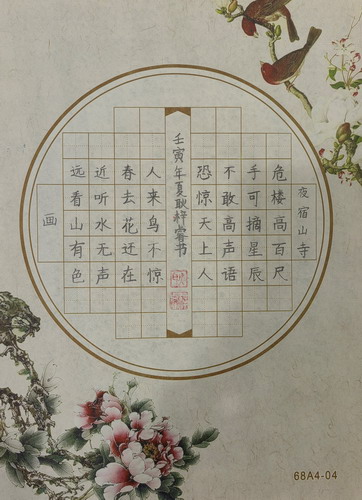 夜宿山寺
危楼高百尺
手可摘星辰
不敢高声语
恐惊天上人
壬寅年夏耿梓睿书
人来鸟不惊
春去花还在
近听水无声
远看山有色
画
68A4-04